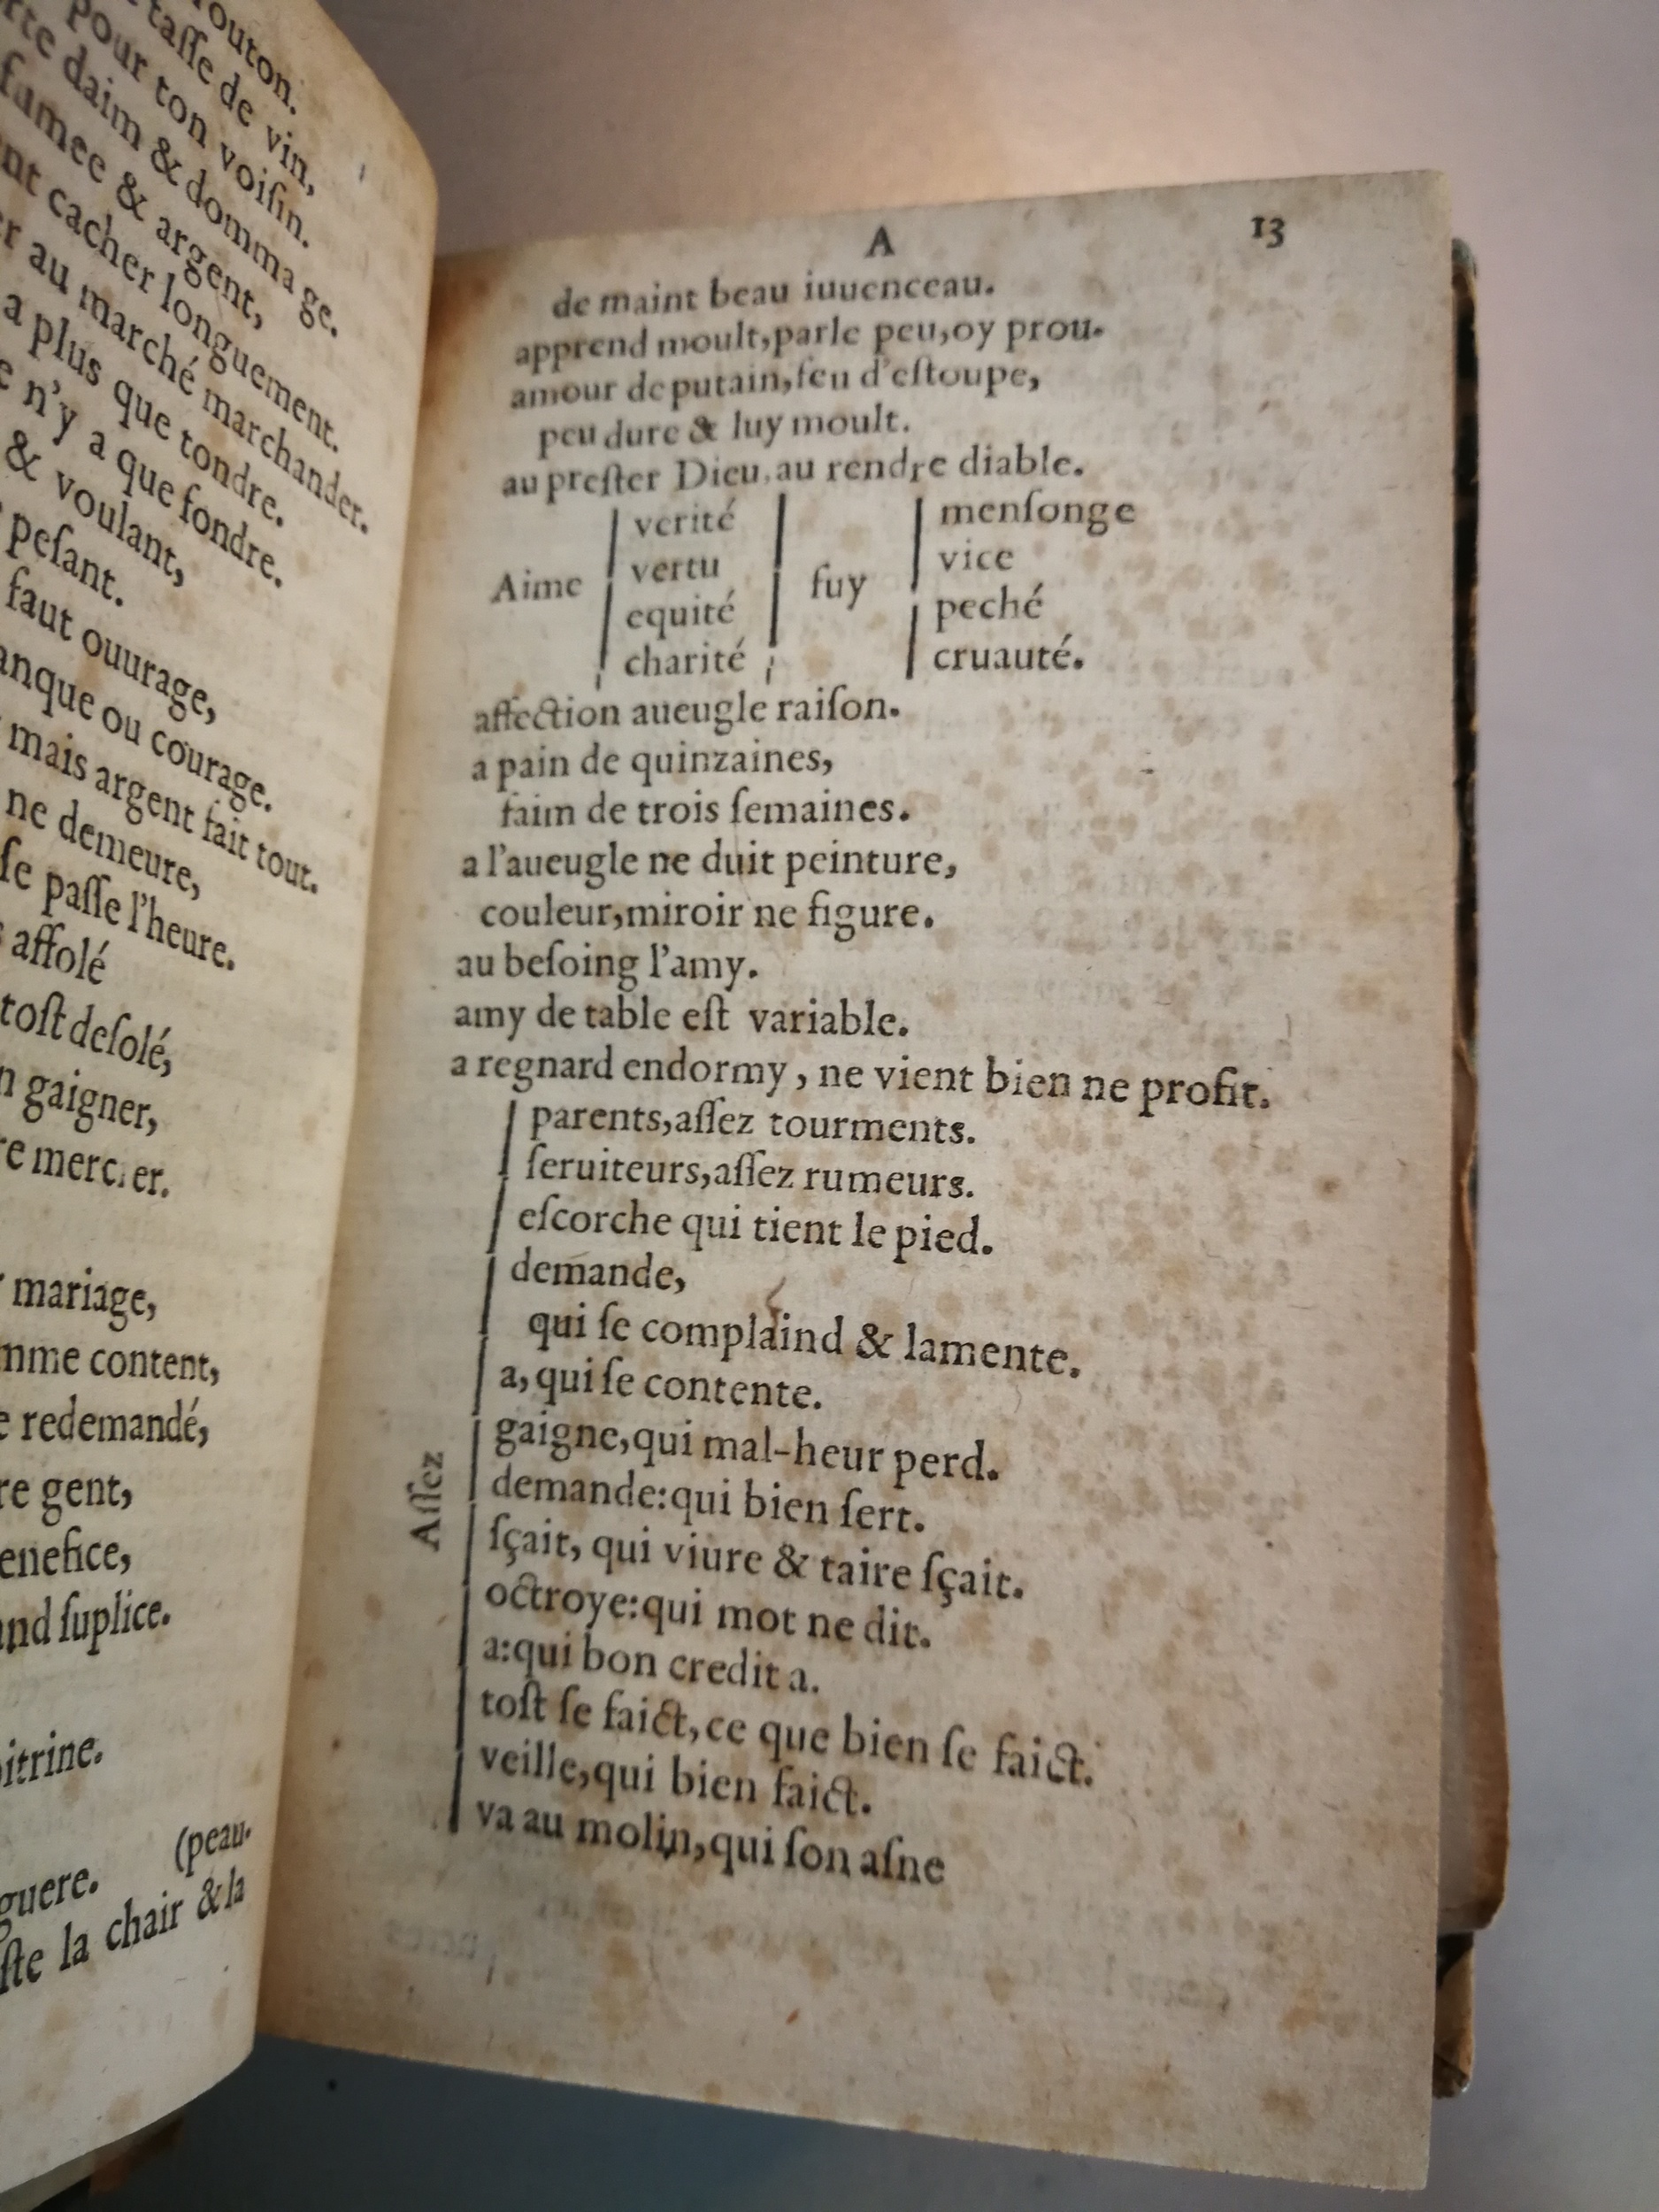 outon.
taſſe de vin,
pour ton voiſin.
rte daim & domma ge.
fumee & argent,
nt cacher longuement.
r au marché marchander.
a plus que tondre.
e n'y a que fondre.
& voulant,
peſant.
faut ouurage,
anque ou courage.
mais argent fait tout.
ne demeure,
ſe paſſe l'heure.
affolé
toſt deſolé,
n gaigner,
re mercier.
mariage,
mme content,
e redemandé,
re gent,
enefice,
and ſuplice.
oitrine.
(peau.
guere.
ſte la chair & la
A 13
de maint beau iuuenceau.
apprend moult,parle peu,oy prou.
amour de putain,feu d'eſtoupe,
peu dure & luy moult.
au preſter Dieu,au rendre diable.
verité menſonge
vertu vice
Aime fuy
equité peché
charité cruauté.
affection aueugle raiſon.
a pain de quinzaines,
faim de trois ſemaines.
a l'aueugle ne duit peinture,
couleur,miroir ne figure.
au beſoing l'amy.
amy de table eſt variable.
a regnard endormy, ne vient bien ne profit.
Aſſez
parents,aſſez tourments.
ſeruiteurs,aſſez rumeurs.
eſcorche qui tient le pied.
demande,
qui ſe complaind & lamente.
a, qui ſe contente.
gaigne,qui mal-heur perd.
demande:qui bien ſert.
ſçait, qui viure & taire ſçait.
octroye:qui mot ne dit.
a:qui bon credit a.
toſt ſe faict,ce que bien ſe faict.
veille,qui bien faict.
va au molin,qui ſon aſne